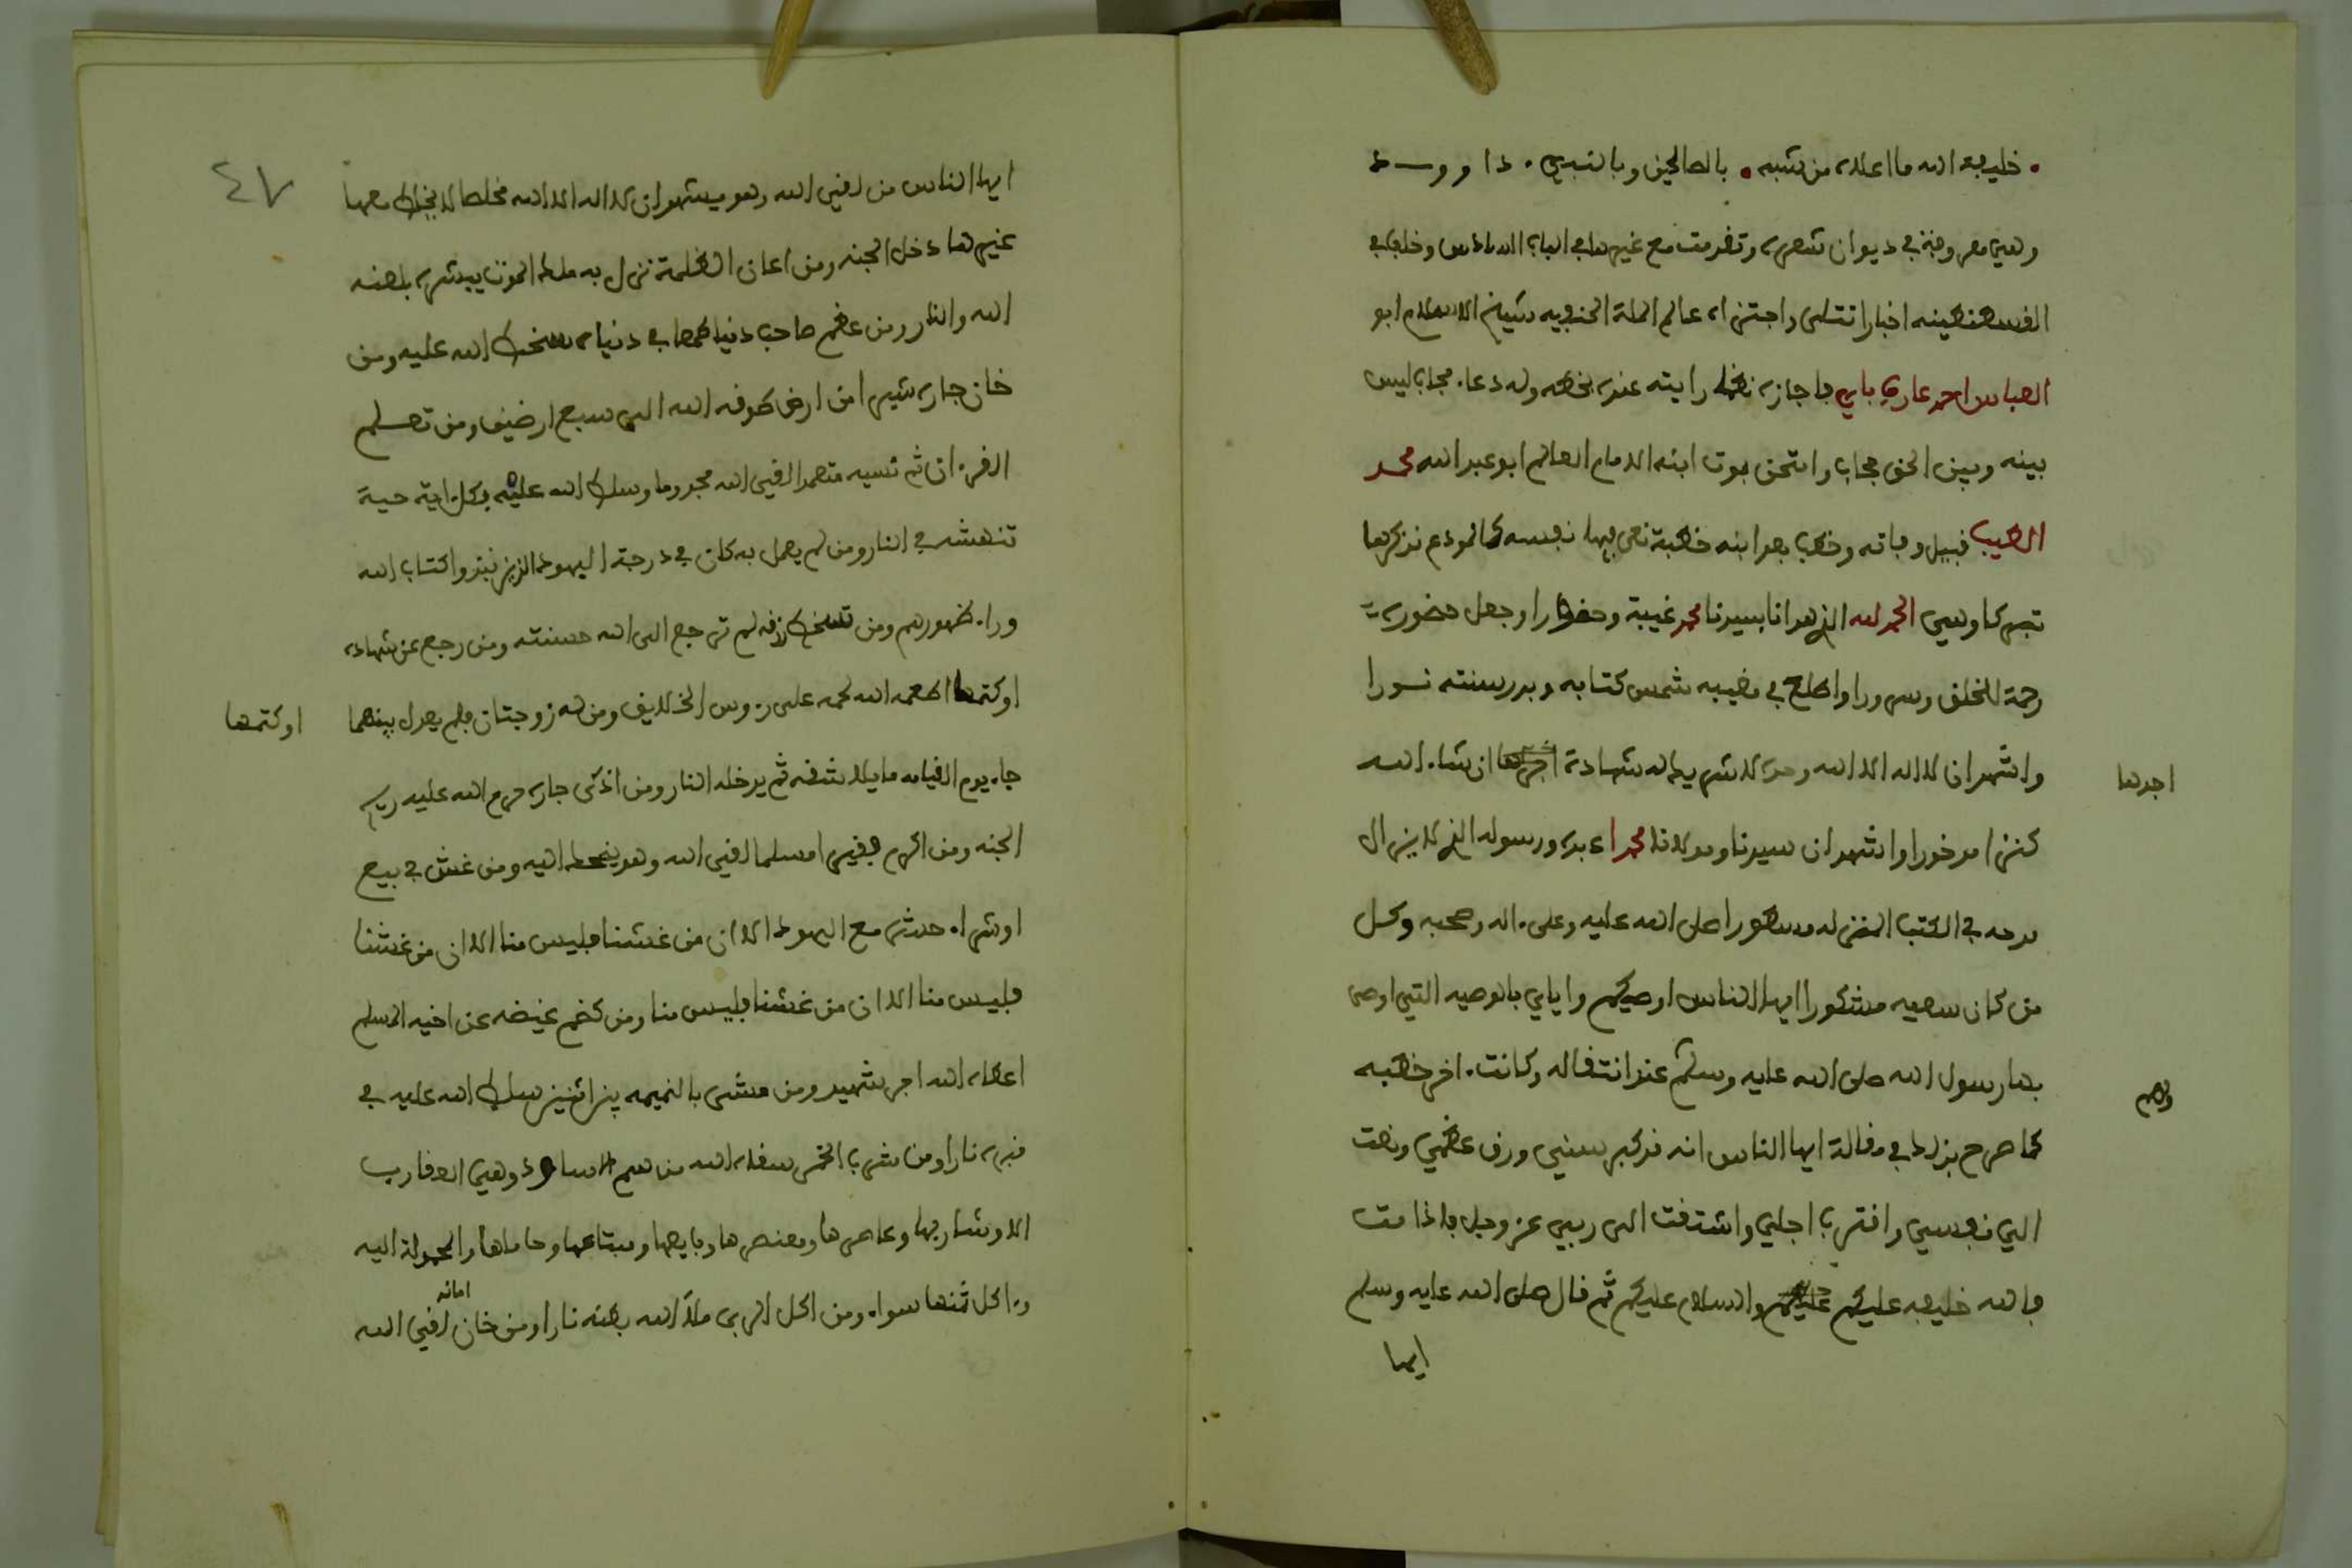 خليفة الله ما اعلاه من شبه بالصالحين وبالنبي داوود
وهي معروفة في ديوان شعره وتقدمت مع غيرها في الباب السادس وخاطب
القسنطينه اخبارا تتلى واجتزاه عالم الملة الحنفيه شيخ الاسلام ابو
العباس احمد عارف باي باجازة رايته عنده بخطه وله دعاء مجاب ليس
بينه وبين الحق حجاب وامتحن بموت ابنه الامام العالم ابو عبد الله محمد
الطيب قبيل وفاته وخطب بعد ابنه خطبة نعى فيها نفسه كالمودع نذكرها
تبركا وهي الحمد لله الذي هدانا بسيدنا محمد غيبة وحضورا وجعل حضوره
رحمة للخلق وسرورا واطلع في مغيبه شمس كتابه وبدر سنته نورا
واشهد ان لا اله الا الله وحده لا شريك له شهادة اجدها ان شاء الله
اجدها
كنزا مدخورا واشهد ان سيدنا ومولانا محمدا عبده ورسوله الذي لا يزال
مدحه في الكتب المنزله مسطورا صلى الله عليه وعلى اله وصحبه وكل
من كان سعيه مشكورا ايها الناس اوصيكم واياي بالوصيه التي اوصى
بها رسول الله صلى الله عليه وسلم عند انتقاله وكانت اخر خطبه
كما صرح بذلك في مقالة ايها الناس انه قد كبر سني ورق عظمي ونعت
الي نفسي واقترب اجلي واشتقت الى ربي عز وجل فاذا مت
فالله خليفه عليكم والسلام عليكم ثم قال صلى الله عليه وسلم
ايها
٤٧
ايها الناس من لقي الله وهو يشهد ان لا اله الا الله مخلصا لا يخلط معها
غيرها دخل الجنه ومن اعان الظلمة نزل به ملك الموت يبشره بلعنه
الله والنار ومن عظم صاحب دنيا طمعا في دنياه سخط الله عليه ومن
خان جاره شبرا من ارض طوقه الله الى سبع ارضين ومن تعلم
القرءان ثم نسيه متعمدا لقي الله مجذوما وسلط الله عليه بكل اية حية
تنهشه في النار ومن لم يعمل به كان في درجة اليهود الذين نبذوا كتاب الله
وراء ظهورهم ومن تسخط رزقه لم ترجع الى الله حسنته ومن رجع عن شهاده
او كتمها اطعمه الله لحمه على رءوس الخلايق ومن له زوجتان فلم يعدل بينهما
او كتمها
جاء يوم القيامه مايلا شقه ثم يدخله النار ومن اذى جاره حرم الله عليه ريح
الجنه ومن اكرم فقيرا مسلما لقي الله وهو يضحك اليه ومن غش في بيع
او شراء حشره مع اليهود الا ان من غشنا فليس منا الا ان من غشنا
فليس منا الا ان من غشنا فليس منا ومن كظم غيضه عن اخيه المسلم
اعطاه الله اجر شهيد ومن مشى بالنميمه بين اثنين سلط الله عليه في
قبره نارا ومن شرب الخمر سقاه الله من سم الاساود وهي العقارب
الا وشاربها وعاصرها ومعتصرها وبايعها ومبتاعها وحاملها والمحمولة اليه
وءاكل ثمنها سواء ومن اكل الربى ملأ الله بطنه نارا ومن خان امانه لقي الله